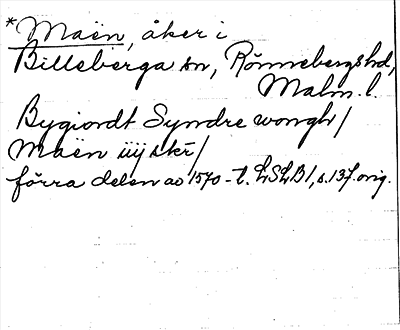 *Maën, åker i
Billeberga sn, Rönnebergs hd,
Malm. l.
Bygiordt Syndre wongh/
Maën iiij skr/
förra delen av 1570-t. LSLB1, s. 137. orig.